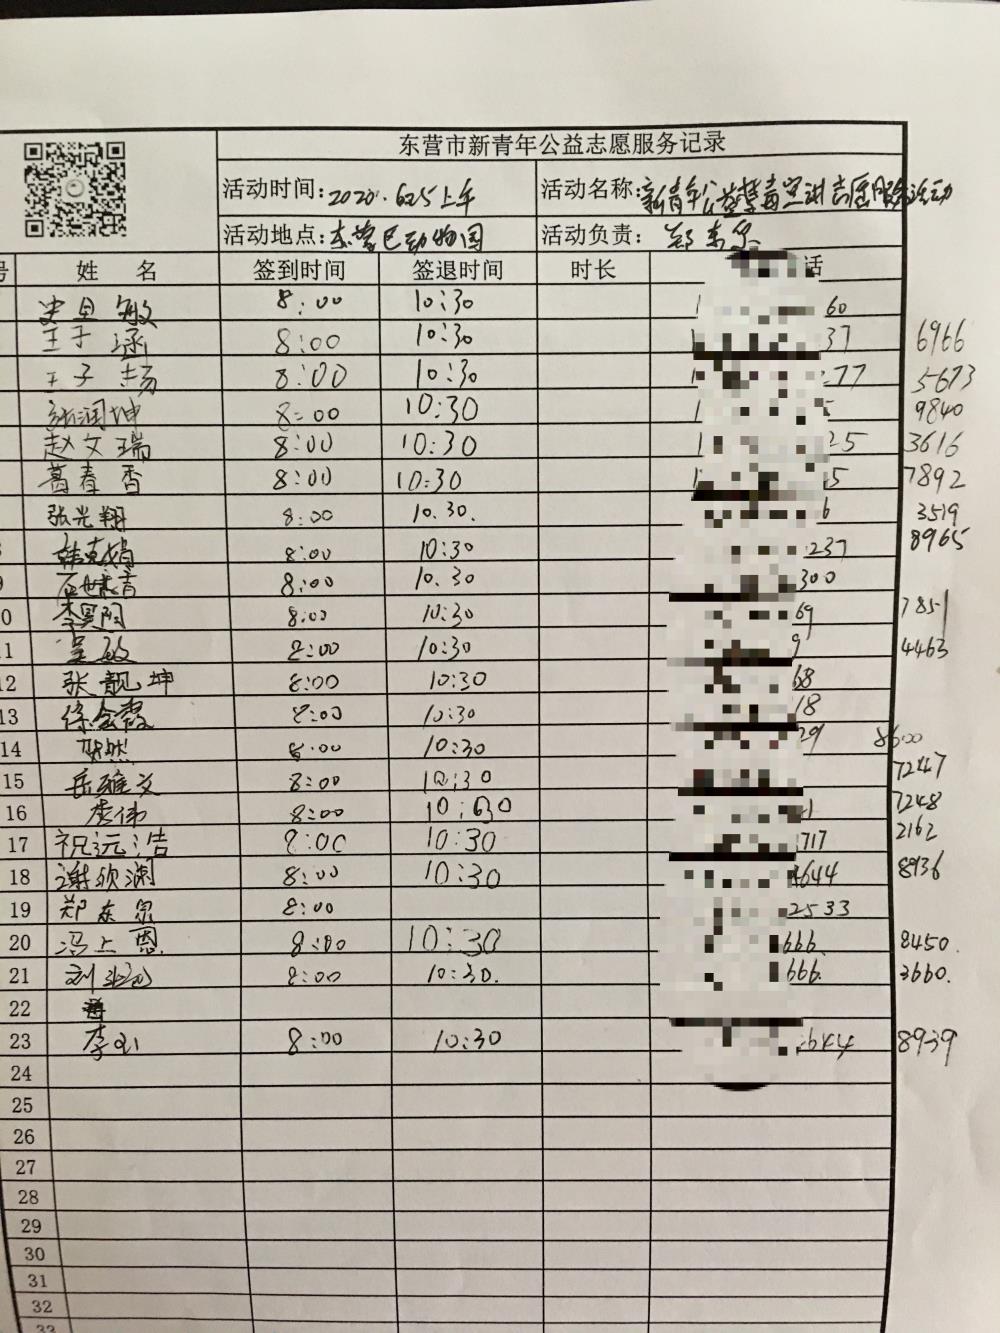 东营市新青年公益志愿服务记录
活动时间: 2020.625上午 活动名称: 新青年公益禁毒宣讲志愿服务活动
活动地点: 东营区动物园 活动负责: 郑东泉
号 姓 名 签到时间 签退时间 时长 话
史 敏 8:00 10:30 60
王子涵 8:00 10:30 37 6966
王子 8:00 10:30 77 5673
张润坤 8:00 10:30 9840
赵文瑞 8:00 10:30 25 3616
葛春香 8:00 10:30 5 7892
张光翔 8:00 10.30. 6 3519
韩 娟 8:00 10:30 237 8965
8:00 10.30 300
10 李昊阳 8:00 10:30 69 7851
11 吴敏 8:00 10:30 9 4463
12 张靓坤 8:00 10:30 68
13 徐金霞 8:00 10:30 18
14 8:00 10:30 29 8600
15 岳雅文 8:00 10:30 7247
16 李伟 8:00 10:30 7248
17 祝远浩 8:00 10:30 717 2162
18 谢欣澜 8:00 10:30 4644 8936
19 郑东泉 8:00 2533
20 冯上恩 8:00 10:30 666 8450.
21 刘 8:00 10:30. 666. 3660.
22
23 李 8:00 10:30 644 8939
24
25
26
27
28
29
30
31
32
33